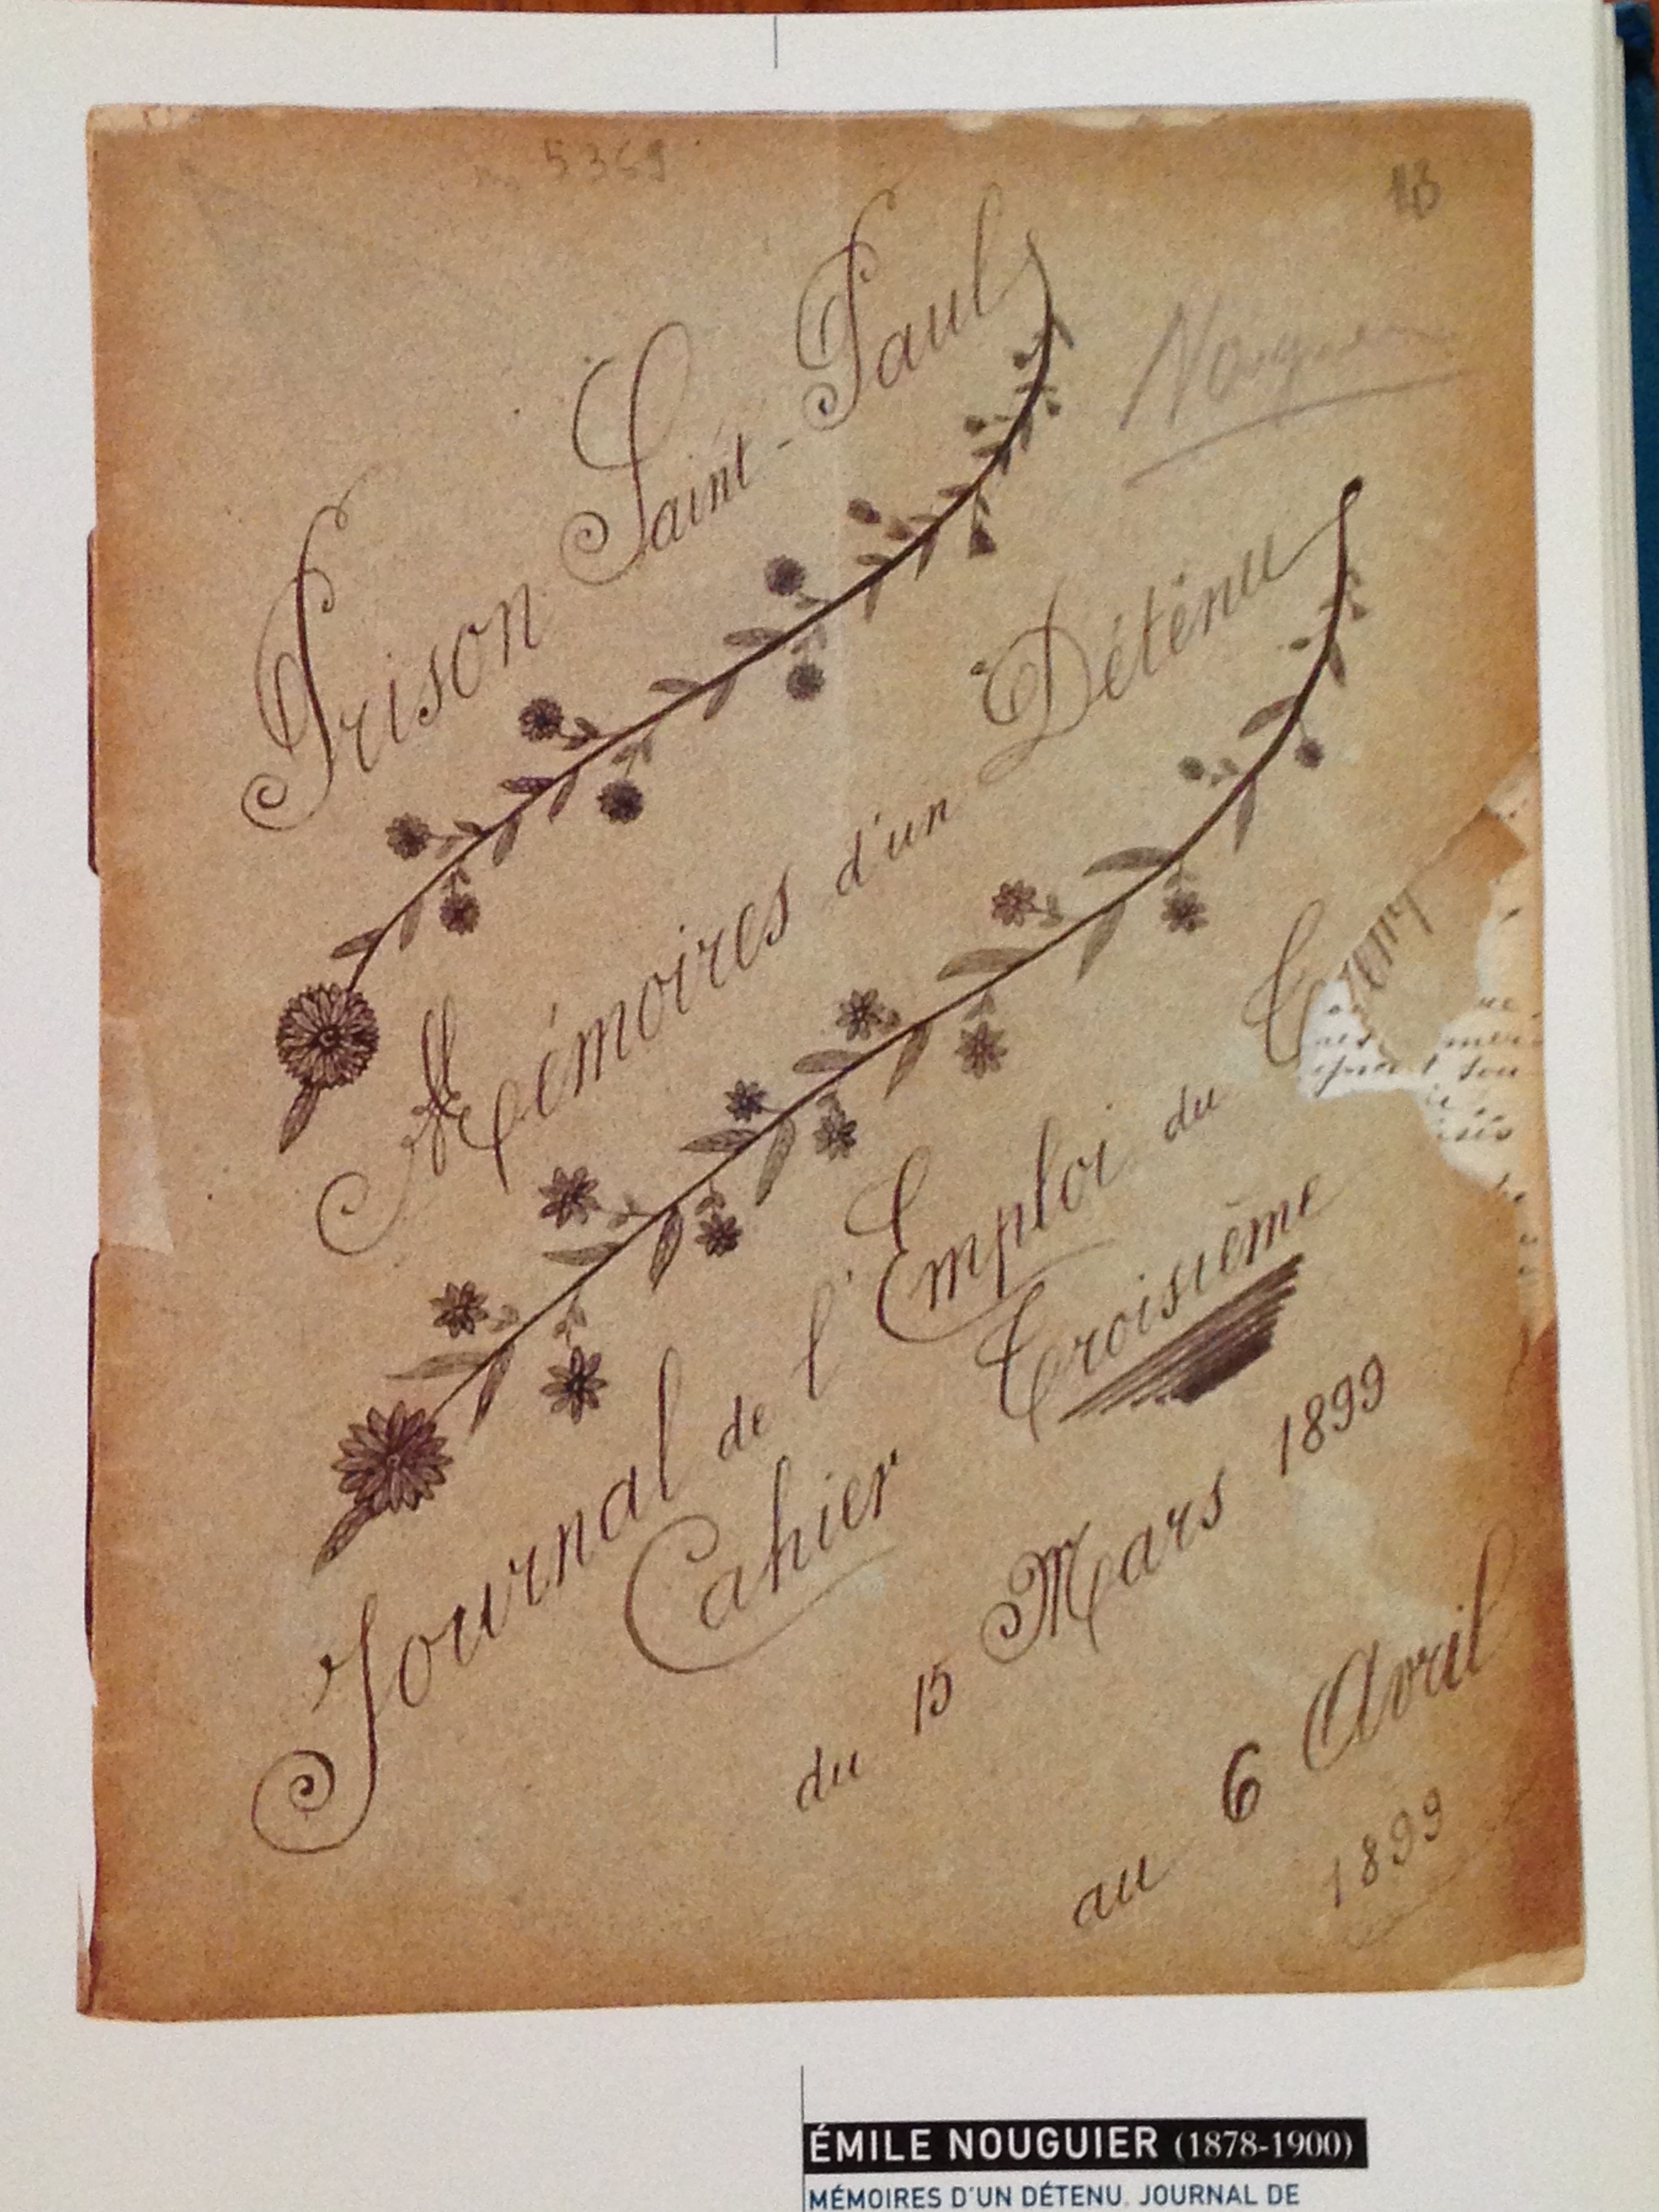 5369
Prison Saint-Paul
Mémoires d'un Détenu
Journal de l'Emploi du
Cahier Troisième
du 15 Mars 1899
au 6 Avril
1899
ÉMILE NOUGUIER (1878-1900)
MÉMOIRES D'UN DÉTENU. JOURNAL DE